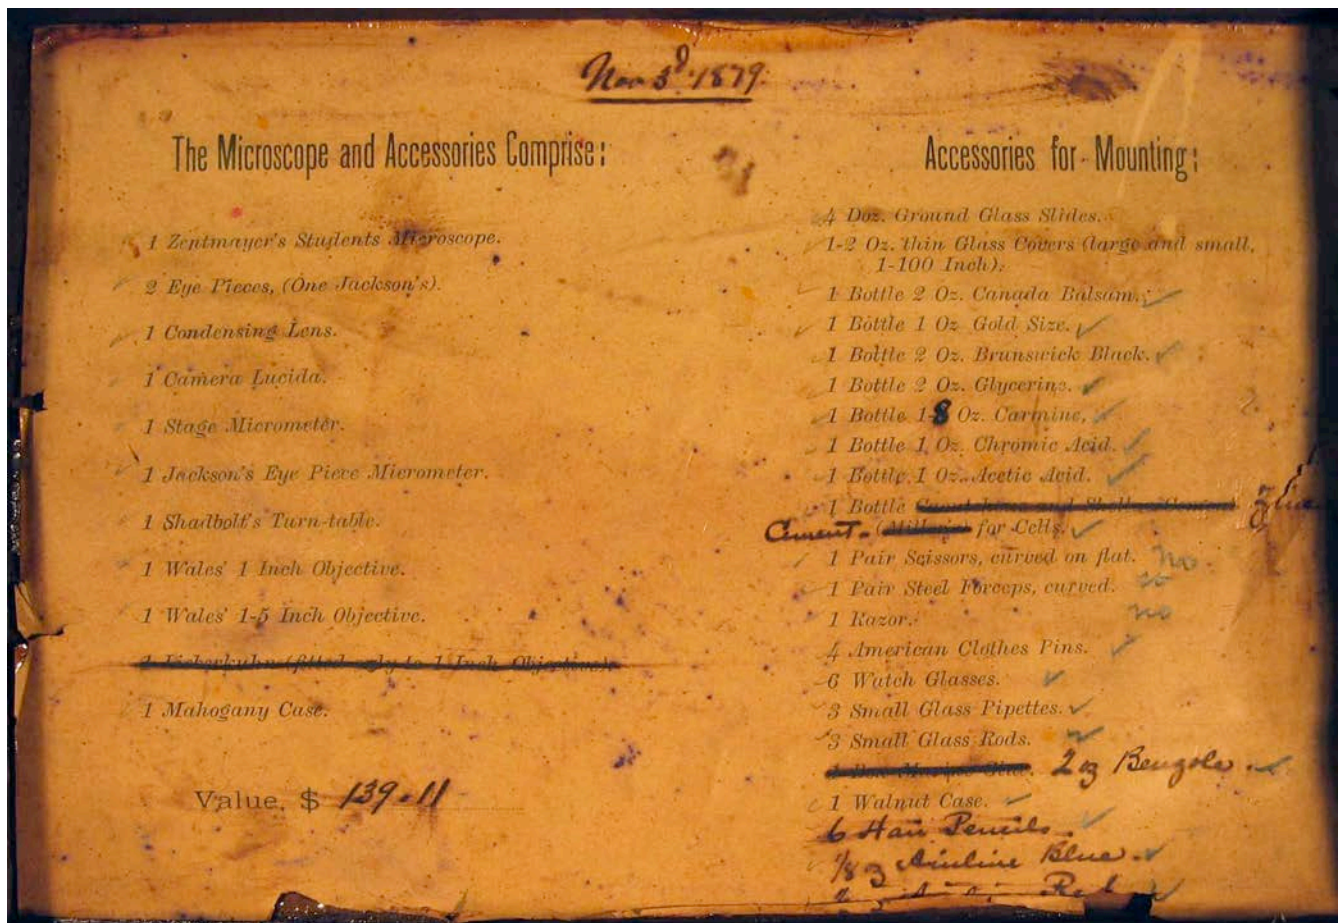 Nov 3d 1879.
The Microscope and Accessories Comprise:
1 Zentmayer's Students Microscope.
2 Eye Pieces, (One Jackson's).
1 Condensing Lens.
1 Camera Lucida.
1 Stage Micrometer.
1 Jackson's Eye Piece Micrometer.
1 Shadbolt's Turn-table.
1 Wales' 1 Inch Objective.
1 Wales' 1-5 Inch Objective.
1 Lieberkuhn (fitted only to 1 Inch Objective).
1 Mahogany Case.
Value, $ 139.11
Accessories for Mounting:
4 Doz. Ground Glass Slides.
1-2 Oz. thin Glass Covers (large and small,
1-100 Inch).
1 Bottle 2 Oz. Canada Balsam.
1 Bottle 1 Oz Gold Size.
1 Bottle 2 Oz. Brunswick Black.
1 Bottle 2 Oz. Glycerine.
1 Bottle 1-8 Oz. Carmine,
1 Bottle 1 Oz. Chromic Acid.
1 Bottle 1 Oz. Acetic Acid.
1 Bottle
Cement. for Cells.
1 Pair Scissors, curved on flat. no
1 Pair Steel Forceps, curved.
1 Razor. no
4 American Clothes Pins.
6 Watch Glasses.
3 Small Glass Pipettes.
3 Small Glass Rods.
2 oz Benzole.
1 Walnut Case.
6 Hair Pencils.
1/8 oz Aniline Blue.
Red